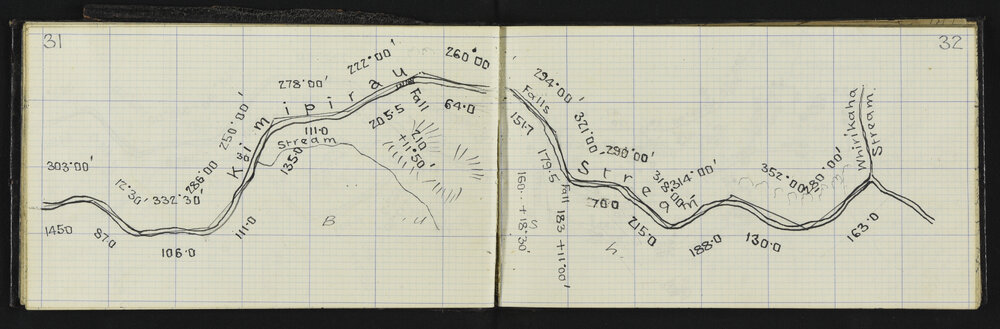 31
303°00'
12.30'
332.30
286.00
250.00'
278.00'
222.00'
260°00
Kaimipirau
1450
87.0
106.0
111.0
135.0
111.0
205.5
Fall
64.0
Stream
210
+11°50'
B u s h
32
294°00'
Falls
321.00
290.00'
318.00
314°00'
352.00'
280°00'
Stream
Whirikaha
Stream
151.7
179.5
160.. +18°30'
Fall 183 +11°00'
70.0
215.0
188.0
130.0
163.0